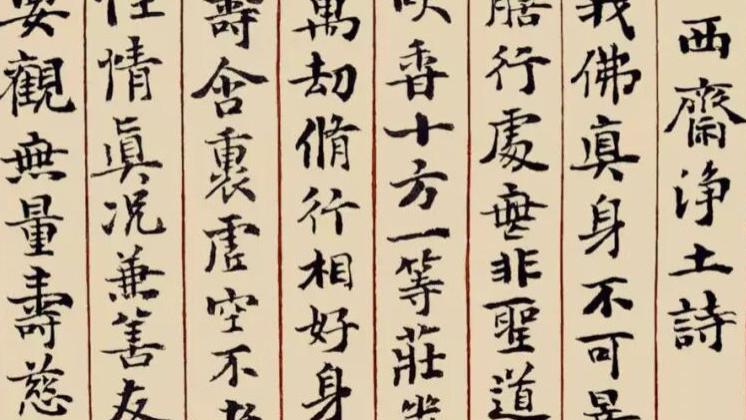 西齋淨土詩
我佛真身不可
行處無非聖道
吹香十方一等莊
萬劫脩行相好身
壽含裹虛空不
性情真况兼善友
要觀無量壽慈